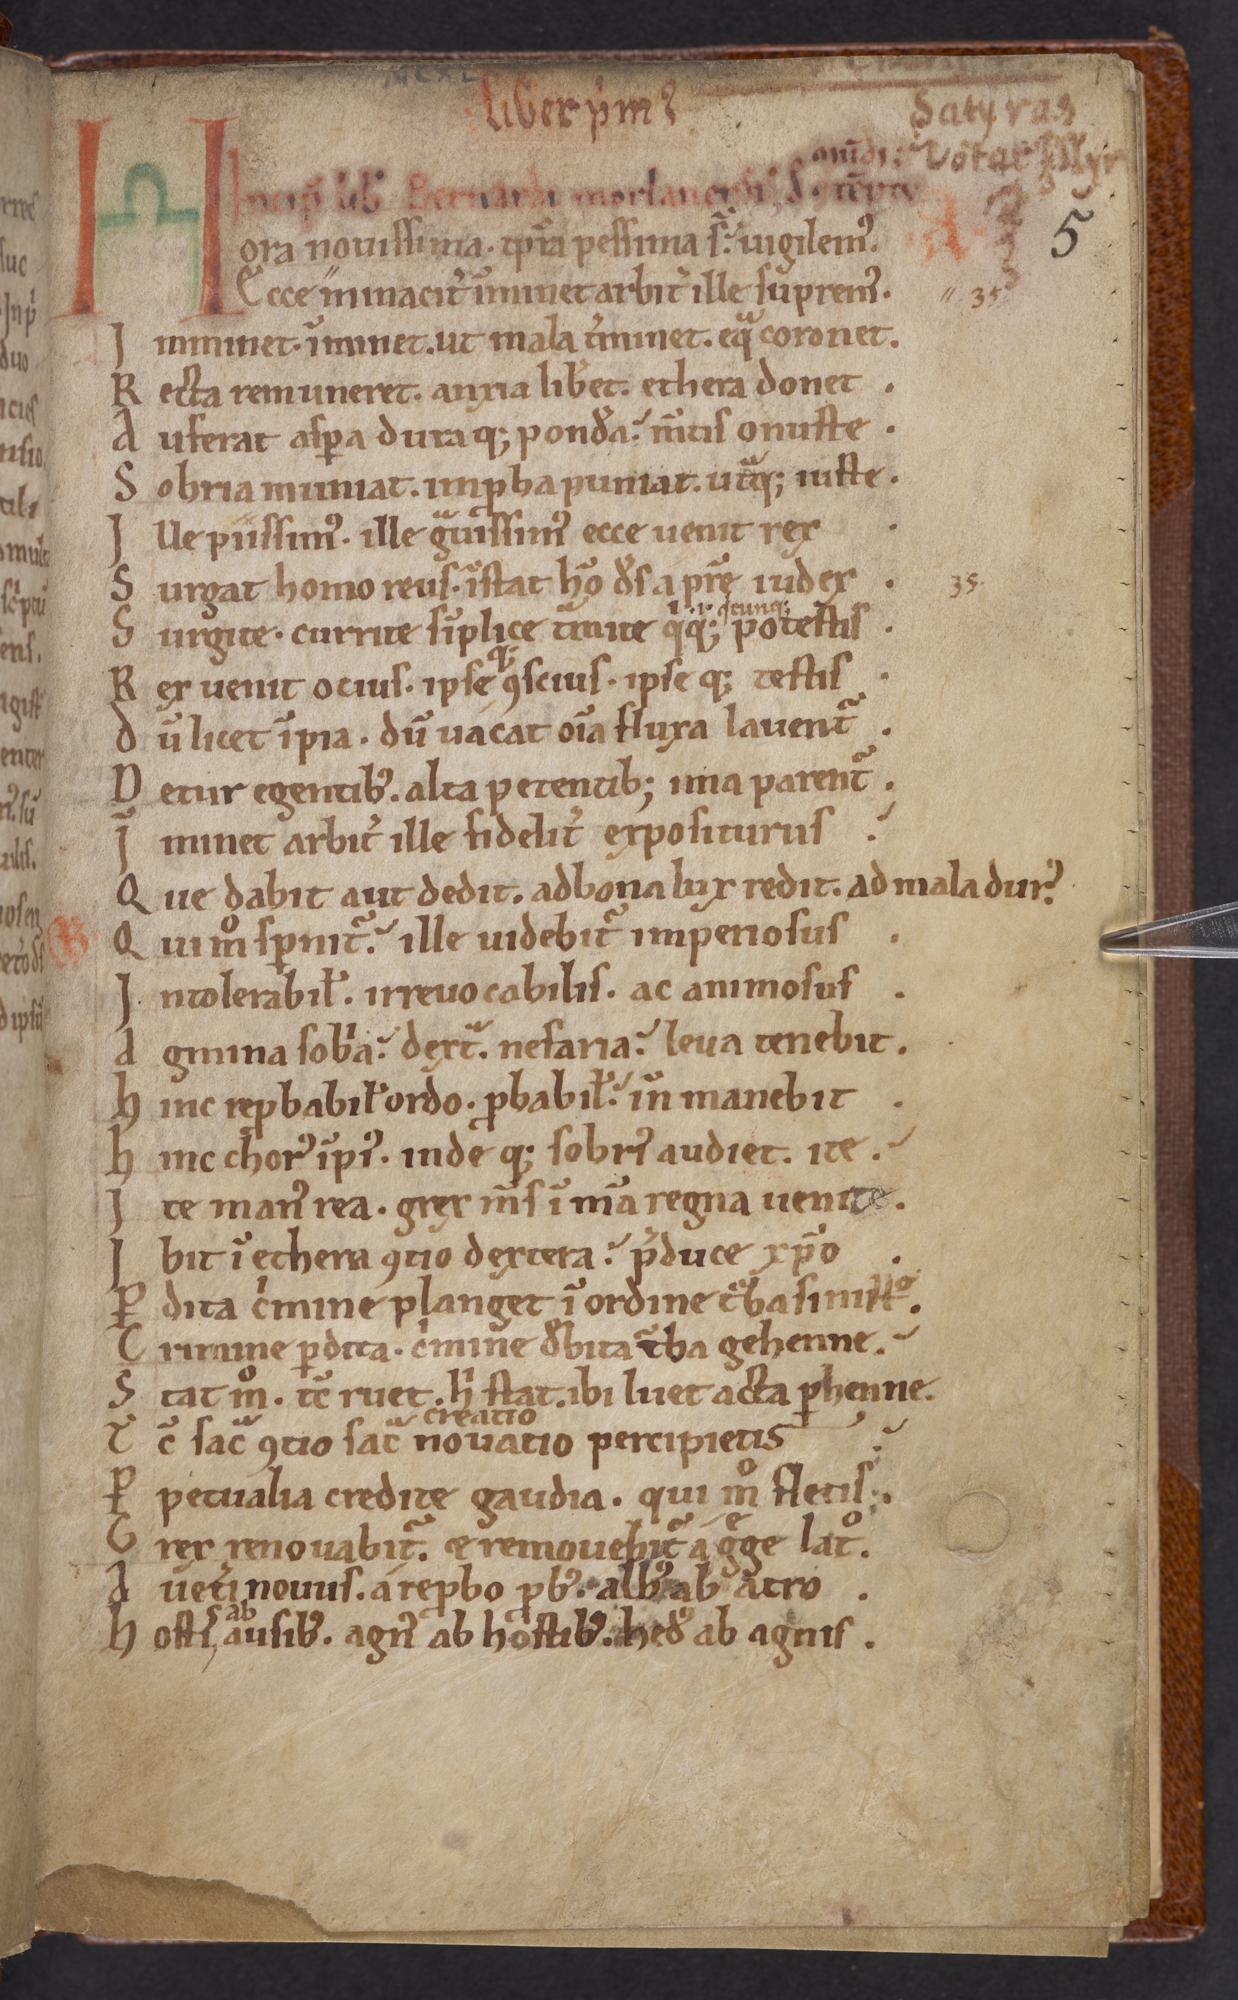 liber p̄mꝰ
Satyras
Incip̄ lib̄ Bernardi morlanensis
5
Hora nouissima. tp̄ra pessima st̄. uigilemꝰ.
Ecce minacit̄ īminet arbit̄ ille suprem̄ꝰ.
35
Imminet. īminet. ut mala t̄minet. eq̄ coronet.
Recta remuneret. anxia lib̄et. ethera donet.
Auferat aspꝑa duraq; pond̄a. m̄tis onuste.
Sobria muniat. imꝓba puniat. ut̄q; iuste.
Ille piissimꝰ. ille g̃uissimꝰ ecce uenit rex.
Surgat homo reus. īstat hō d̄s a pr̄e iudex.
35.
Surgite. currite simplice t̄mite q̄q; potestis.
Rex uenit ocius. ipse q; ꝯscius. ipse q; testis.
Dū licet īpia. dū uacat oīa fluxa lauent̄.
Detur egentibꝰ. alta petentib; ima parent̄.
Īminet arbit̄ ille fidelit̄ expositurus
Que dabit aut dedit. ad bona lux redit. ad mala durꝰ.
Qui m̊ sp̄nit̄. ille uidebit̄ imperiosus.
Intolerabil̄. irreuocabilis. ac animosus.
Agmina sob̄a. dext̄. nefaria. leua tenebit.
Hinc reꝓbabil̄ ordo. ꝓbabil̄. iñ manebit.
Hinc chorꝰ īpiꝰ. inde q; sobriꝰ audiet. ite.
Ite manꝰ rea. grex m̄s ī m̄a regna uenite.
Ibit ī ethera ꝯtio dextera. p̄duce xp̄o.
ꝑdita c̄mine planget ī ordine t̄ba sinistro.
Crimine ꝑdita. c̄mine d̄bita t̄ba gehenne.
Stat m̊. tc̄ ruet. h̄ stat. ibi luet acta ꝑhenne.
creatio
Tc̄ sac̄ ꝯtio sac̄ nouatio percipietis
ꝑpetualia credite gaudia. qui m̊ fletis.
Grex renouabit̄. & remouebit̄ a g̃ge lat̊.
A uet̄i nouus. a reꝓbo ꝓbꝰ. albꝰ ab atro.
ab
Hostis ausibꝰ. agnꝰ ab hostibꝰ. hedꝰ ab agnis.